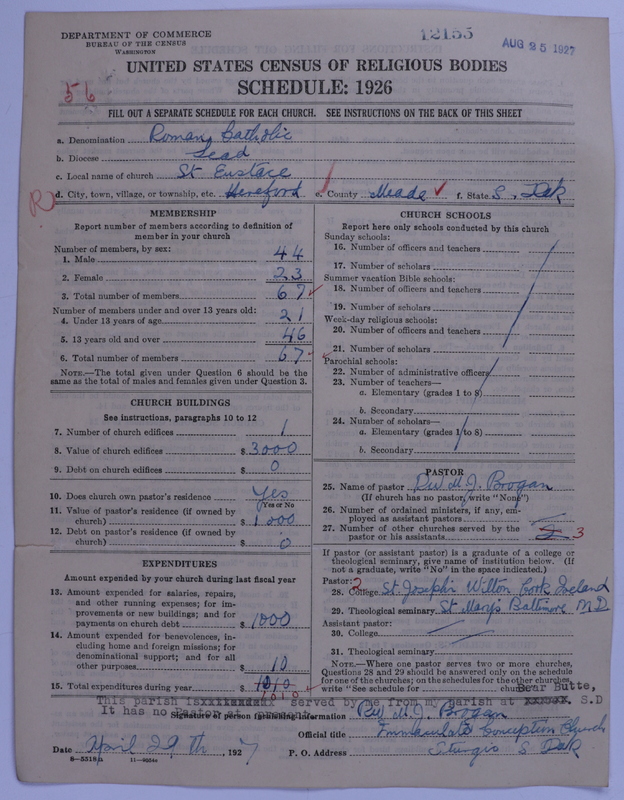 DEPARTMENT OF COMMERCE
BUREAU OF THE CENSUS
WASHINGTON
12155
AUG 25 1927
UNITED STATES CENSUS OF RELIGIOUS BODIES
SCHEDULE: 1926
56
FILL OUT A SEPARATE SCHEDULE FOR EACH CHURCH. SEE INSTRUCTIONS ON THE BACK OF THIS SHEET
a. Denomination Roman Catholic
b. Diocese Lead
c. Local name of church St Eustace
R
d. City, town, village, or township, etc. Hereford e. County Meade f. State S. Dak
MEMBERSHIP
Report number of members according to definition of member in your church
Number of members, by sex:
1. Male 44
2. Female 23
3. Total number of members 67
Number of members under and over 13 years old:
4. Under 13 years of age 21
5. 13 years old and over 46
6. Total number of members 67
NOTE.—The total given under Question 6 should be
same as the total of males and females given under Question 3.
CHURCH BUILDINGS
See instructions, paragraphs 10 to 12
7. Number of church edifices 1
8. Value of church edifices $ 3000
9. Debt on church edifices $ 0
10. Does church own pastor's residence Yes
Yes or No
11. Value of pastor's residence (if owned by
church) $ 1000
12. Debt on pastor's residence (if owned by
church) $ 0
EXPENDITURES
Amount expended by your church during last fiscal year
13. Amount expended for salaries, repairs,
and other running expenses; for im-
provements or new buildings; and for
payments on church debt $ 1000
14. Amount expended for benevolences, in-
cluding home and foreign missions; for
denominational support; and for all
other purposes $ 10
15. Total expenditures during year $ 1010
1010
CHURCH SCHOOLS
Report here only schools conducted by this church
Sunday schools:
16. Number of officers and teachers
17. Number of scholars
Summer vacation Bible schools:
18. Number of officers and teachers
19. Number of scholars
Week-day religious schools:
20. Number of officers and teachers
21. Number of scholars
Parochial schools:
22. Number of administrative officers
23. Number of teachers—
a. Elementary (grades 1 to 8)
b. Secondary
24. Number of scholars—
a. Elementary (grades 1 to 8)
b. Secondary
PASTOR
25. Name of pastor Rev M. J. Brogan
(If church has no pastor, write "None")
26. Number of ordained ministers, if any, em-
ployed as assistant pastors
27. Number of other churches served by the
pastor or his assistants 3
If pastor (or assistant pastor) is a graduate of a college or
theological seminary, give name of institution below. (If
not a graduate, write "No" in the space indicated.)
Pastor: 2
28. College St Josephs Wilton Cork Ireland
29. Theological seminary St Marys Baltimore MD
Assistant pastor:
30. College
31. Theological seminary
NOTE.—Where one pastor serves two or more churches,
Questions 28 and 29 should be answered only on the schedule
for one of the churches; on the schedules for the other churches,
write "See schedule for church" Bear Butte,
This parish is served by me from my parish at S.D
It has no Pastor
Signature of person furnishing information Rev M. J. Brogan
Official title Immaculate Conception Church
Date April 29th, 1927 P. O. Address Sturgis S. Dak
8—5518a 11—9554a